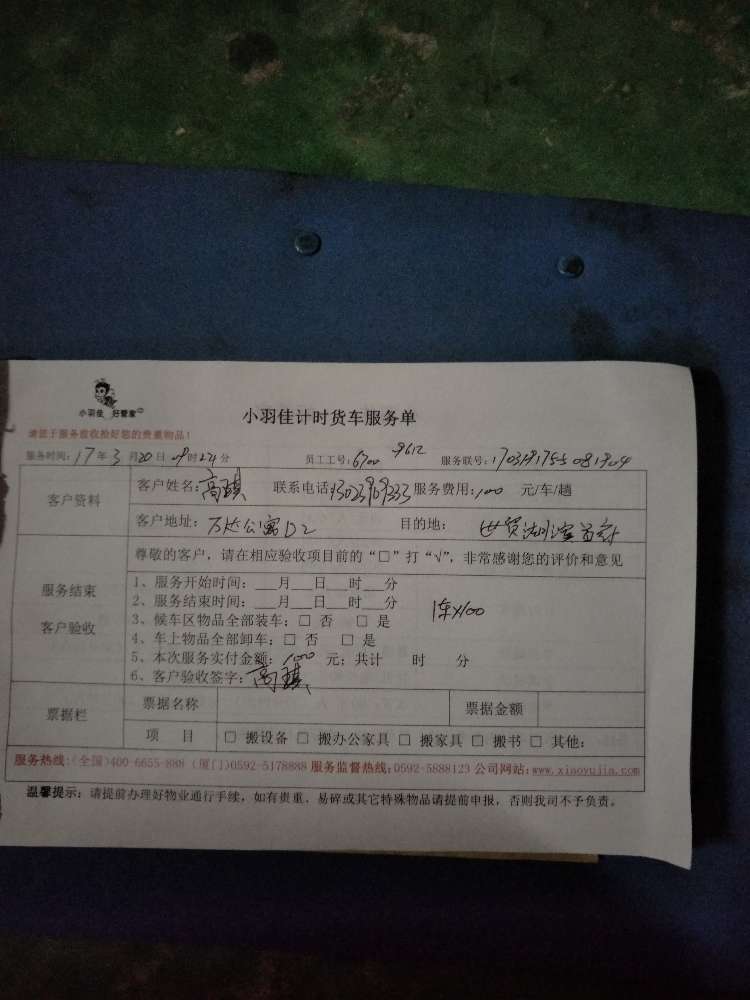 小羽佳 好管家
小羽佳计时货车服务单
请您于服务验收捡好您的贵重物品！
服务时间：17年3月20日 时24分 员工工号：6700 9612 服务联号：
客户资料
客户姓名：高琪 联系电话： 服务费用：100 元/车/趟
客户地址：万达公寓D2 目的地：世贸湖滨首府
尊敬的客户，请在相应验收项目前的“□”打“√”，非常感谢您的评价和意见
服务结束
客户验收
1、服务开始时间：___月___日___时___分
2、服务结束时间：___月___日___时___分
3、候车区物品全部装车：□ 否 □ 是
1车X100
4、车上物品全部卸车：□ 否 □ 是
5、本次服务实付金额：100 元；共计 时 分
6、客户验收签字：高琪
票据栏
票据名称 票据金额
项 目 □ 搬设备 □ 搬办公家具 □ 搬家具 □ 搬书 □ 其他：
服务热线：(全国)400-6655-888 (厦门)0592-5178888 服务监督热线：0592-5888123 公司网站：www.xiaoyujia.com
温馨提示：请提前办理好物业通行手续，如有贵重、易碎或其它特殊物品请提前申报，否则我司不予负责。